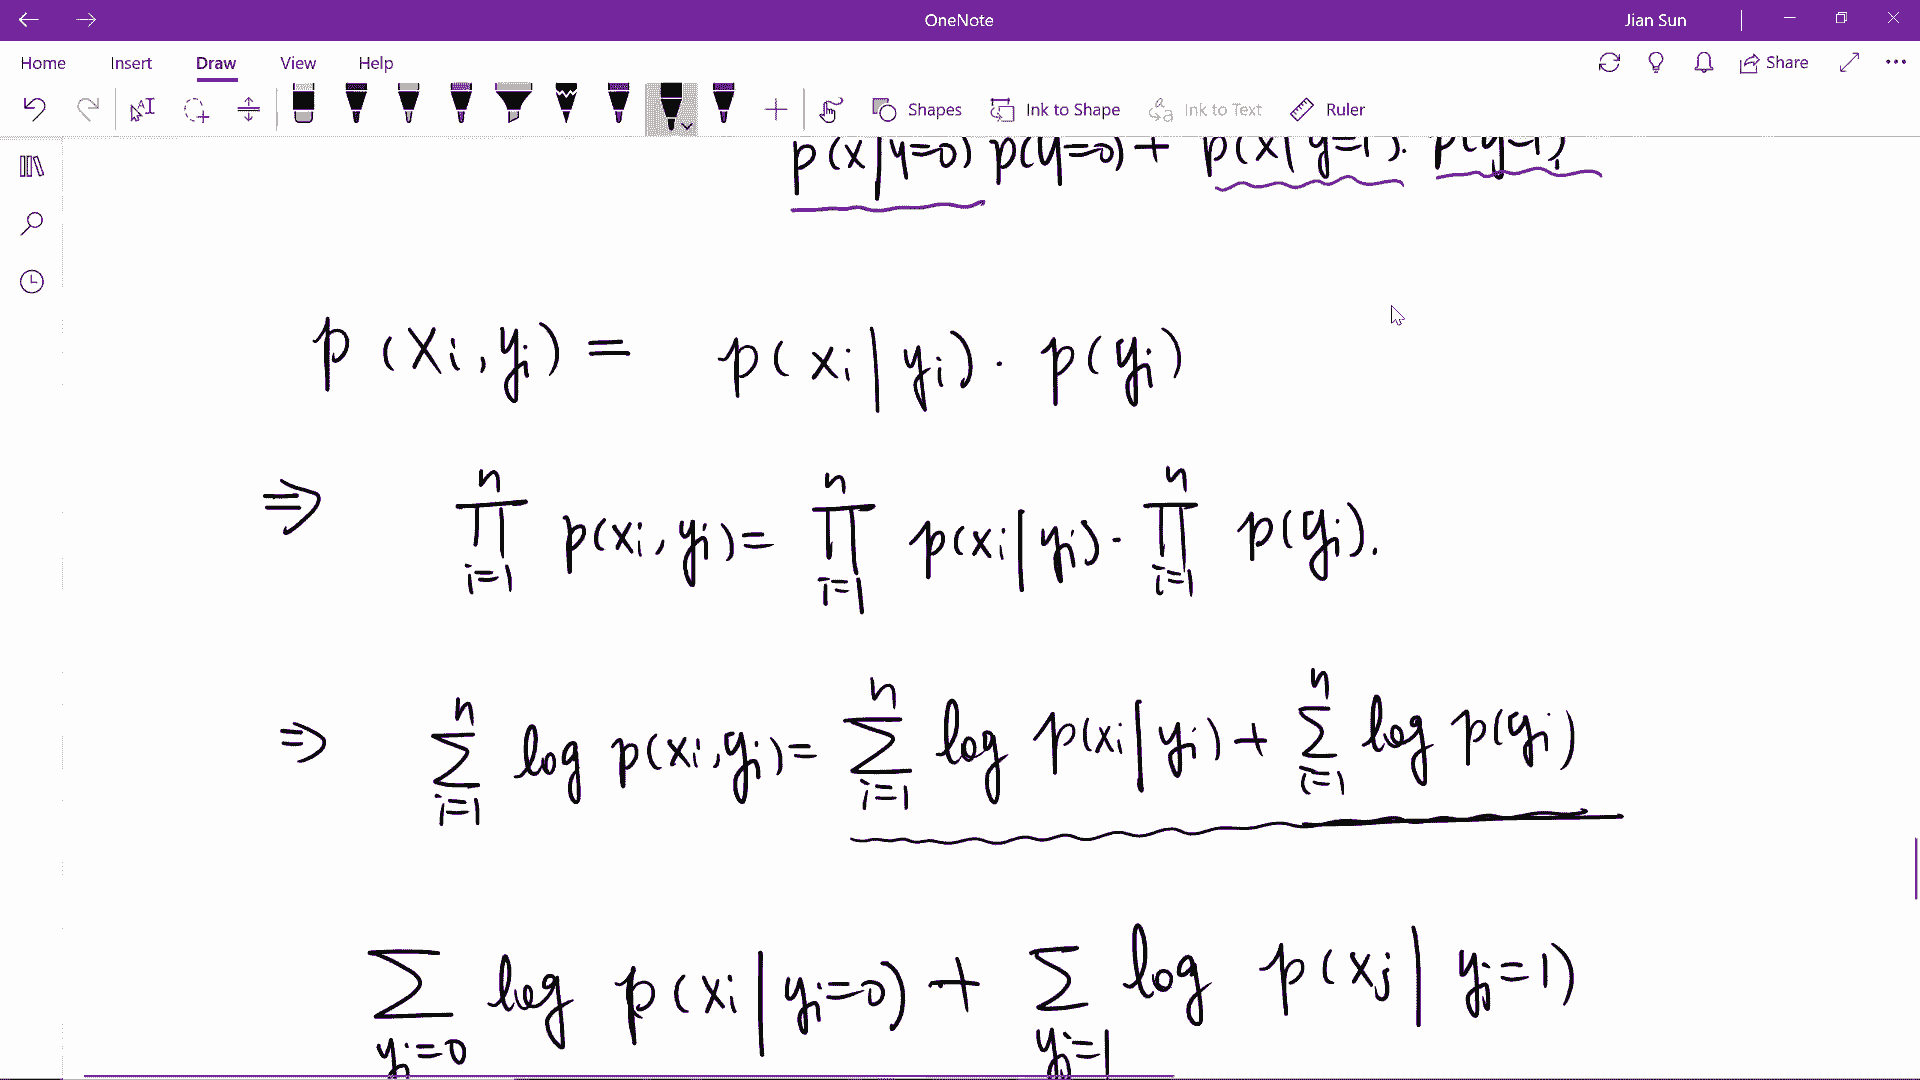 OneNote
Jian Sun
Home Insert Draw View Help
Share
Shapes Ink to Shape Ink to Text Ruler
p(x|y=0) p(y=0) + p(x|y=1). p(y=1)
p(xi, yi) = p(xi|yi) · p(yi)
⇒ ∏_{i=1}^{n} p(xi, yi) = ∏_{i=1}^{n} p(xi|yi) · ∏_{i=1}^{n} p(yi).
⇒ ∑_{i=1}^{n} log p(xi, yi) = ∑_{i=1}^{n} log p(xi|yi) + ∑_{i=1}^{n} log p(yi)
∑_{yi=0} log p(xi|yi=0) + ∑_{yj=1} log p(xj|yj=1)